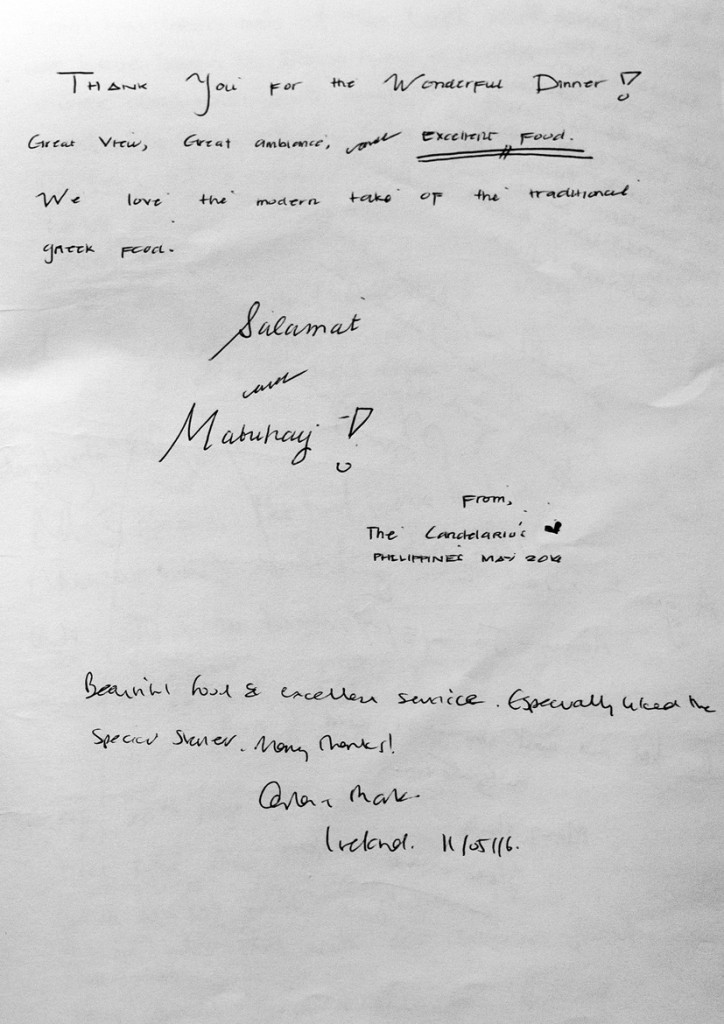 Thank You for the Wonderful Dinner!
Great View, Great ambiance, and Excellent Food.
We love the modern take of the traditional
greek food.
Salamat
and
Mabuhay!
From,
The Candelario's ♥
PHILIPPINES MAY
Beautiful food & excellent service. Especially liked the
special starter. Many thanks!
Mark
Ireland. 11/05/16.